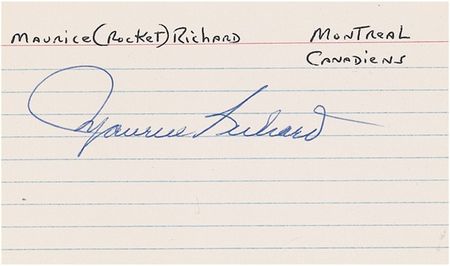 Maurice (Rocket) Richard Montreal
Canadiens
Maurice Richard